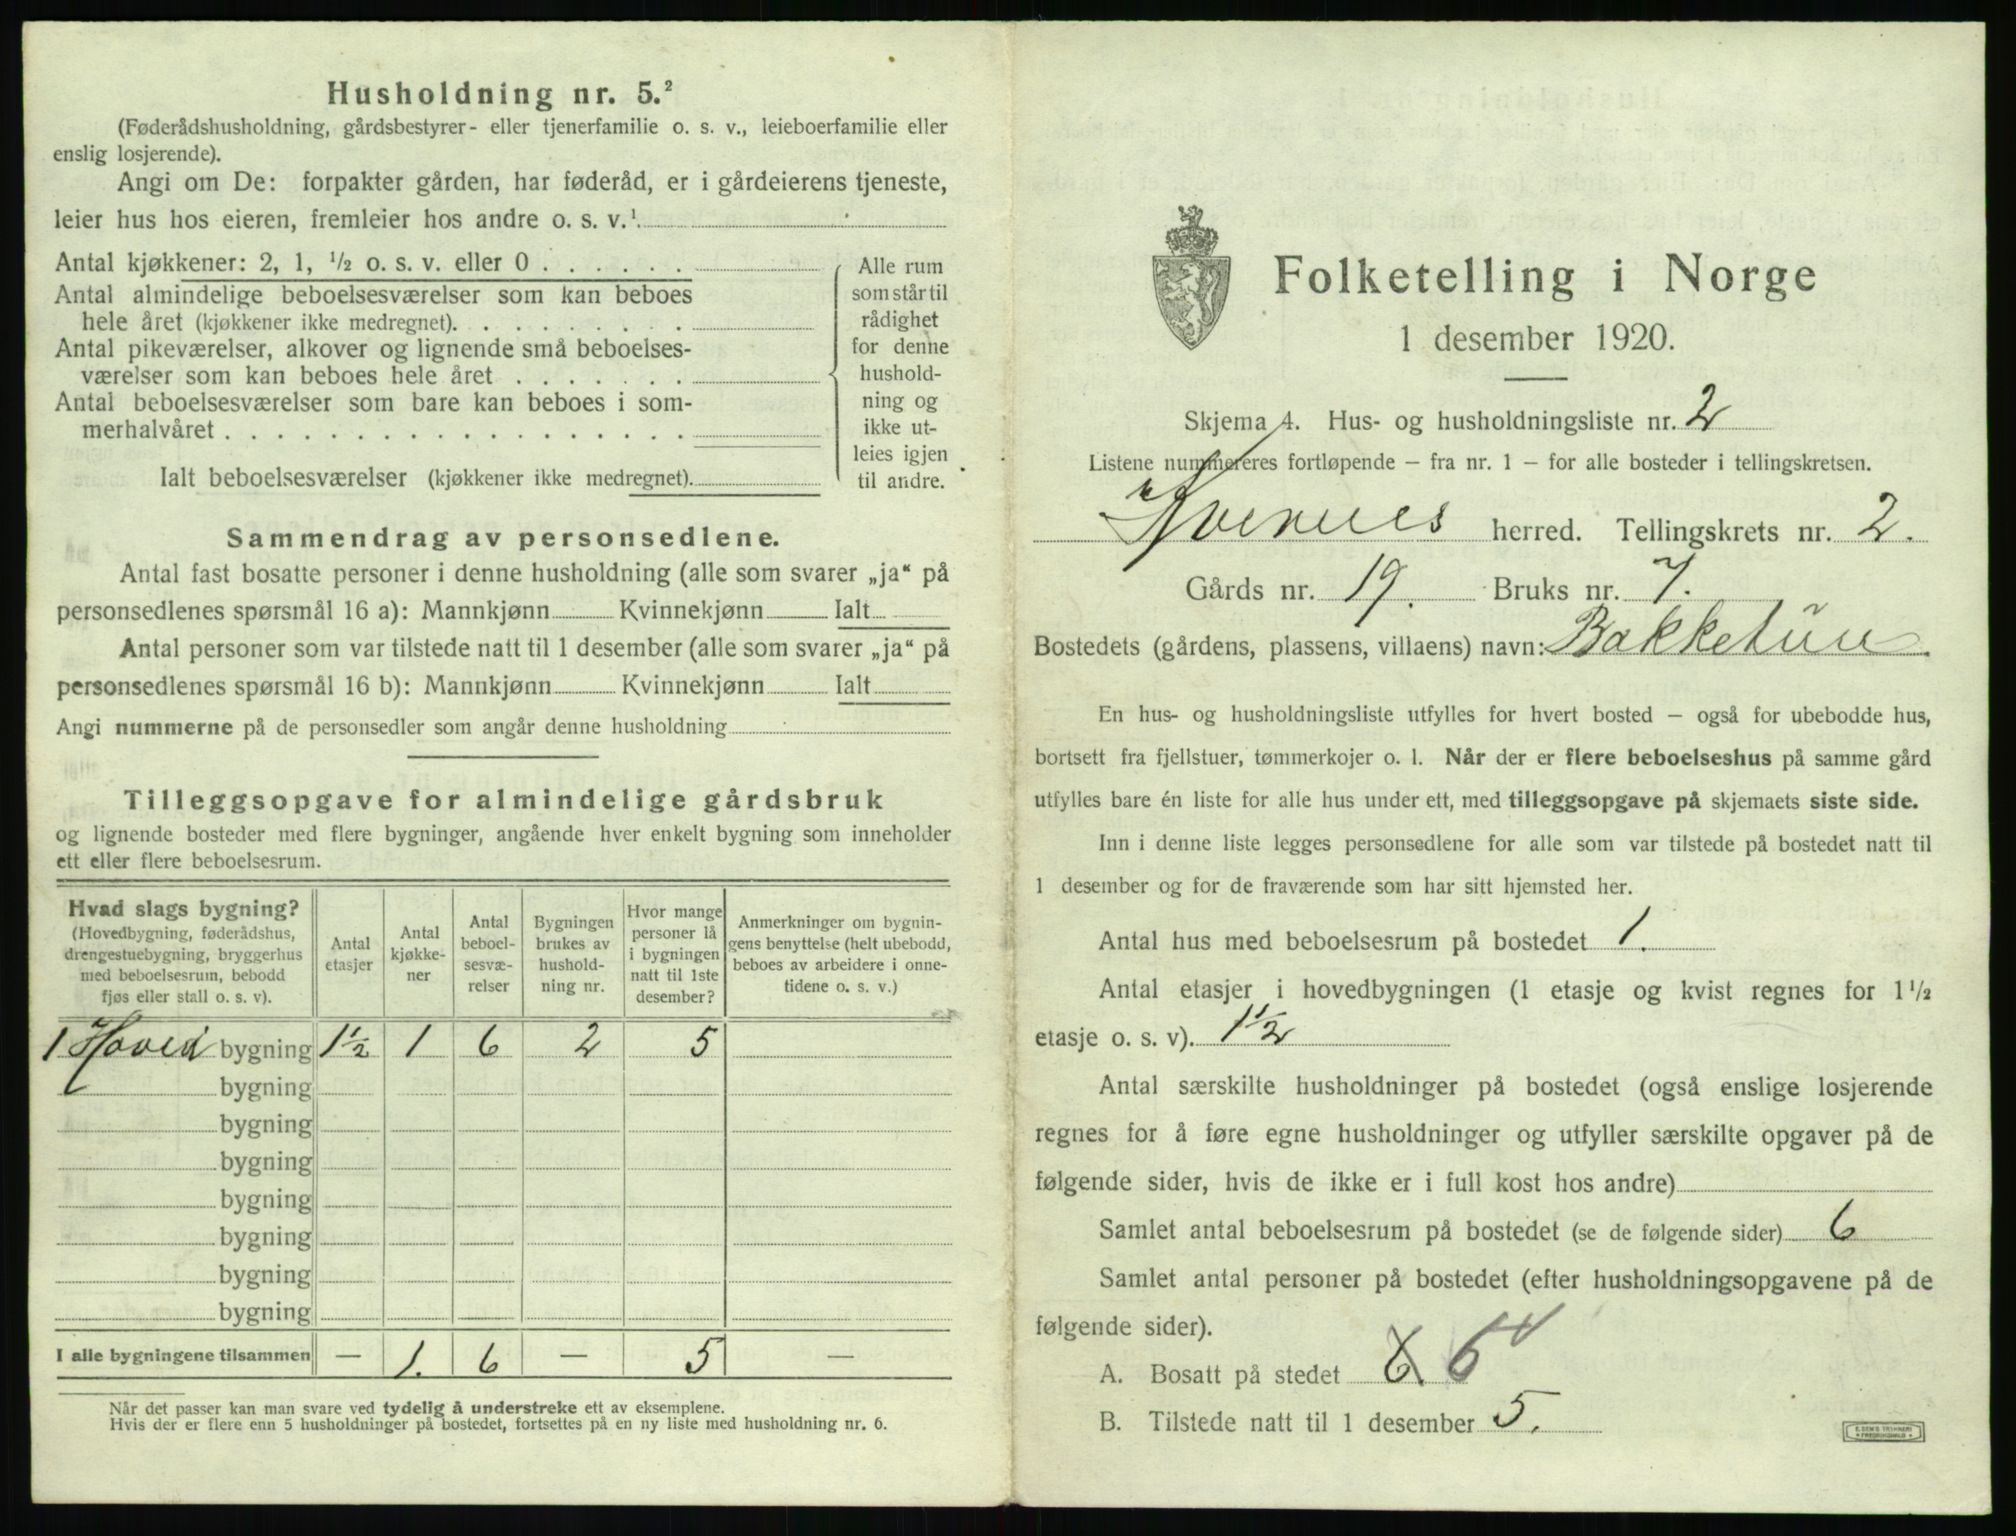 Husholdning nr. 5.²
(Føderådshusholdning, gårdsbestyrer- eller tjenerfamilie o. s. v., leieboerfamilie eller
enslig losjerende).
Angi om De: forpakter gården, har føderåd, er i gårdeierens tjeneste,
leier hus hos eieren, fremleier hos andre o. s. v.¹
Antal kjøkkener: 2, 1, ½ o. s. v. eller 0 . . . . . .
Antal almindelige beboelsesværelser som kan beboes
hele året (kjøkkener ikke medregnet). . . . . . . . .
Antal pikeværelser, alkover og lignende små beboelses-
værelser som kan beboes hele året . . . . . . .
Antal beboelsesværelser som bare kan beboes i som-
merhalvåret . . . . . . . . . . . . . . . . . .
Ialt beboelsesværelser (kjøkkener ikke medregnet).
Alle rum
som står til
rådighet
for denne
hushold-
ning og
ikke ut-
leies igjen
til andre.
Sammendrag av personsedlene.
Antal fast bosatte personer i denne husholdning (alle som svarer „ja“ på
personsedlenes spørsmål 16 a): Mannkjønn Kvinnekjønn Ialt
Antal personer som var tilstede natt til 1 desember (alle som svarer „ja“ på
personsedlenes spørsmål 16 b): Mannkjønn Kvinnekjønn Ialt
Angi nummerne på de personsedler som angår denne husholdning
Tilleggsopgave for almindelige gårdsbruk
og lignende bosteder med flere bygninger, angående hver enkelt bygning som inneholder
ett eller flere beboelsesrum.
Hvad slags bygning?
(Hovedbygning, føderådshus,
drengestuebygning, bryggerhus
med beboelsesrum, bebodd
fjøs eller stall o. s. v).
Antal
etasjer
Antal
kjøkke-
ner
Antal
beboel-
sesvæ-
relser
Bygningen
brukes av
hushold-
ning nr.
Hvor mange
personer lå
i bygningen
natt til 1ste
desember?
Anmerkninger om bygnin-
gens benyttelse (helt ubebodd,
beboes av arbeidere i onne-
tidene o. s. v.)
1 Hoved bygning 1½ 1 6 2 5
bygning
bygning
bygning
bygning
bygning
bygning
bygning
I alle bygningene tilsammen — 1. 6 — 5 —
Når det passer kan man svare ved tydelig å understreke ett av eksemplene.
Hvis der er flere enn 5 husholdninger på bostedet, fortsettes på en ny liste med husholdning nr. 6.
Folketelling i Norge
1 desember 1920.
Skjema 4. Hus- og husholdningsliste nr. 2
Listene nummereres fortløpende – fra nr. 1 – for alle bosteder i tellingskretsen.
Kvernes herred. Tellingskrets nr. 2.
Gårds nr. 19. Bruks nr. 7.
Bostedets (gårdens, plassens, villaens) navn: Bakketun
En hus- og husholdningsliste utfylles for hvert bosted – også for ubebodde hus,
bortsett fra fjellstuer, tømmerkojer o. l. Når der er flere beboelseshus på samme gård
utfylles bare én liste for alle hus under ett, med tilleggsopgave på skjemaets siste side.
Inn i denne liste legges personsedlene for alle som var tilstede på bostedet natt til
1 desember og for de fraværende som har sitt hjemsted her.
Antal hus med beboelsesrum på bostedet 1.
Antal etasjer i hovedbygningen (1 etasje og kvist regnes for 1½
etasje o. s. v). 1½
Antal særskilte husholdninger på bostedet (også enslige losjerende
regnes for å føre egne husholdninger og utfyller særskilte opgaver på de
følgende sider, hvis de ikke er i full kost hos andre)
Samlet antal beboelsesrum på bostedet (se de følgende sider) 6
Samlet antal personer på bostedet (efter husholdningsopgavene på de
følgende sider).
A. Bosatt på stedet 6. 6
B. Tilstede natt til 1 desember 5.